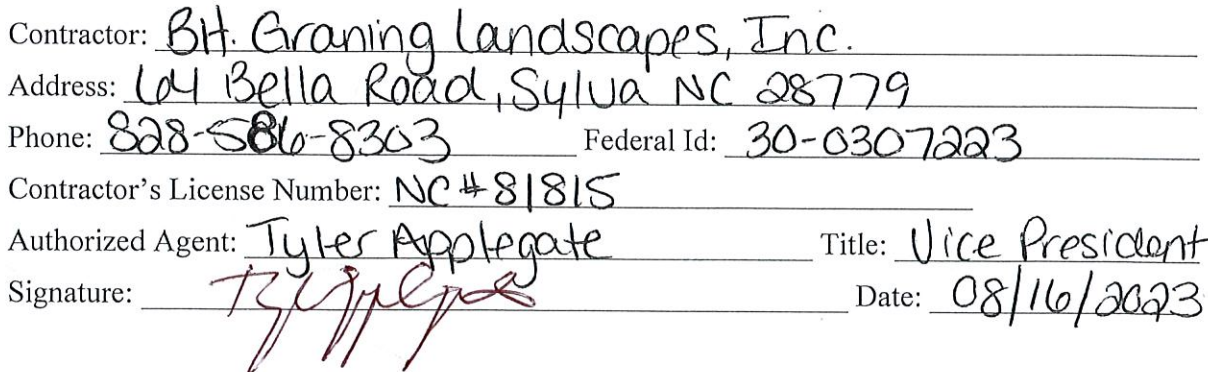 Contractor: BH. Graning Landscapes, Inc.
Address: 64 Bella Road, Sylva NC 28779
Phone: 828-586-8303 Federal Id: 30-0307223
Contractor's License Number: NC#81815
Authorized Agent: Tyler Applegate Title: Vice President
Signature: Date: 08/16/2023